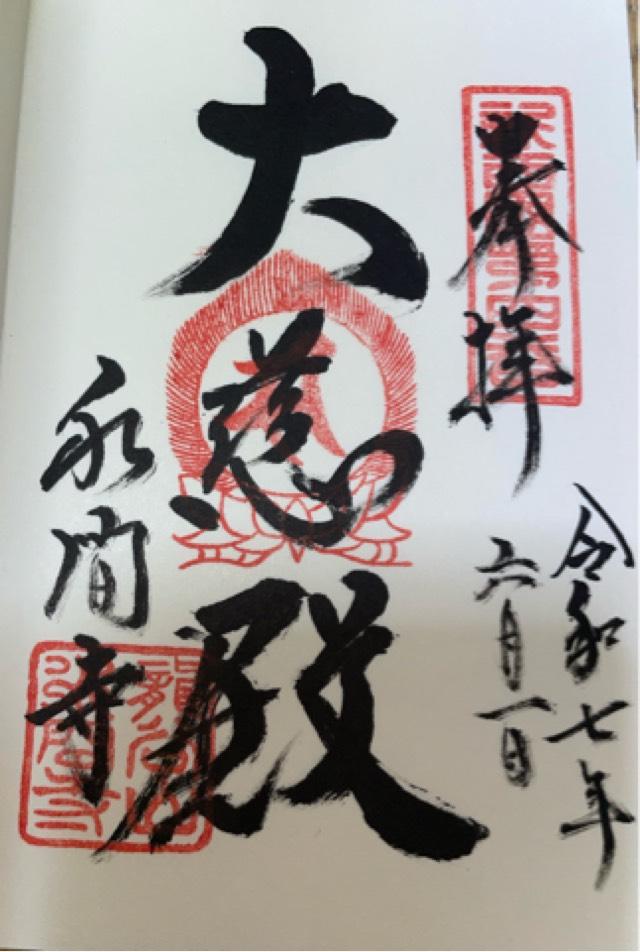 奉拝
令和七年
六月一日
大慈殿
水間寺